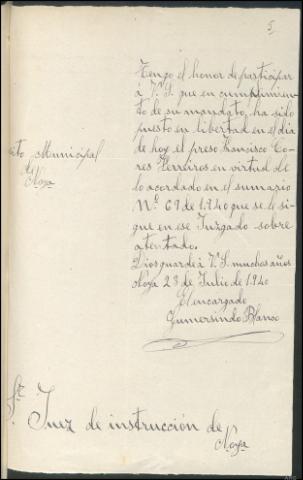 5
Tengo el honor de participar
á V. S. que en cumplimien
to de su mandato, ha sido
puesto en libertad en el dia
de hoy el preso Francisco Co-
res Herreiros en virtud de
lo acordado en el sumario
Nº 69 de 1940 que se le si
gue en ese Juzgado sobre
atentado.
Dios guarde á V. S. muchos años
Noya 23 de Julio de 1940
El encargado
Gumersindo Blanco
ito Municipal
de
Noya
Sr. Juez de instrucción de
Noya